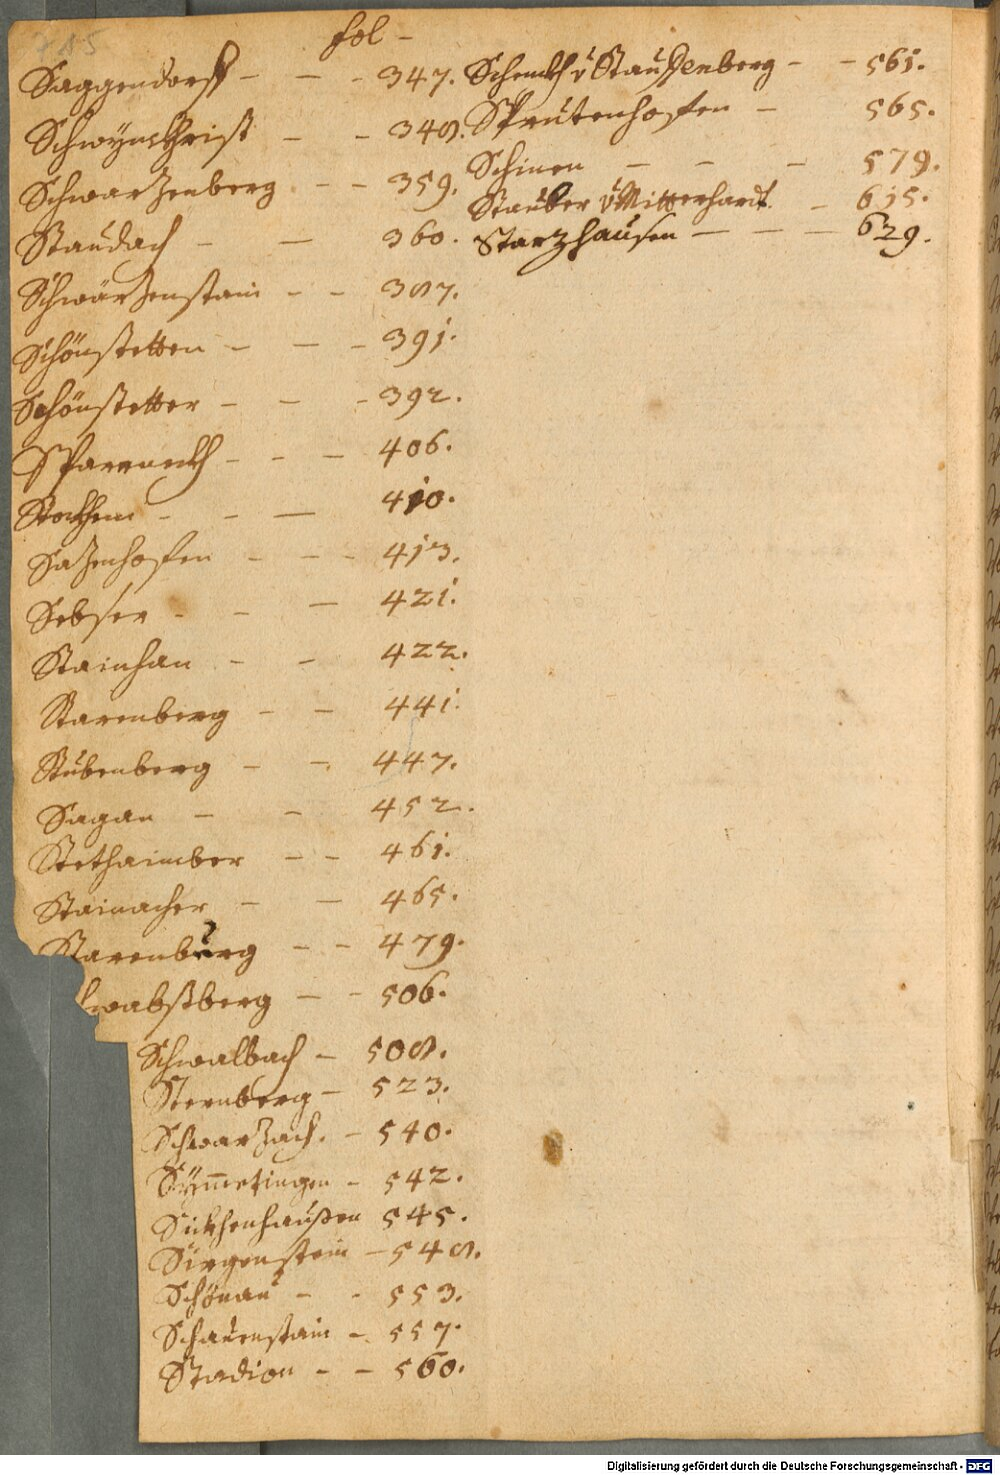 715
fol -
Saggendorff - - - 347.
Schwynchrist - - 348.
Schwarzenberg - - 359.
Staudach - - 360.
Schwärzenstain - - 387.
Schönstetten - - - 391.
Schönstetter - - - 392.
Sparnneckh - - - 406.
Stockheim - - - 410.
Sazenhofen - - - 413.
Sebser - - - 421.
Stainhau - - 422.
Starenberg - - 441.
Stubenberg - - 447.
Sagan - - 452.
Stethaimber - - 461.
Stainacher - - 465.
Starenburg - - 479.
wabsberg - - 506.
Schwalbach - 508.
Sternberg - 523.
Schwarzach. - 540.
Symetingen - 542.
Sickhenhaußen 545.
Sirgenstein - 548.
Schönau - - 553.
Schauenstain - 557.
Stadion - - 560.
Schenckh v Stauffenberg - - 561.
Sprutenhofen - 565.
Schinen - - - 579.
Stauber v Mitterhardt - 615.
Starzhausen - - - 629.
Digitalisierung gefördert durch die Deutsche Forschungsgemeinschaft - DFG